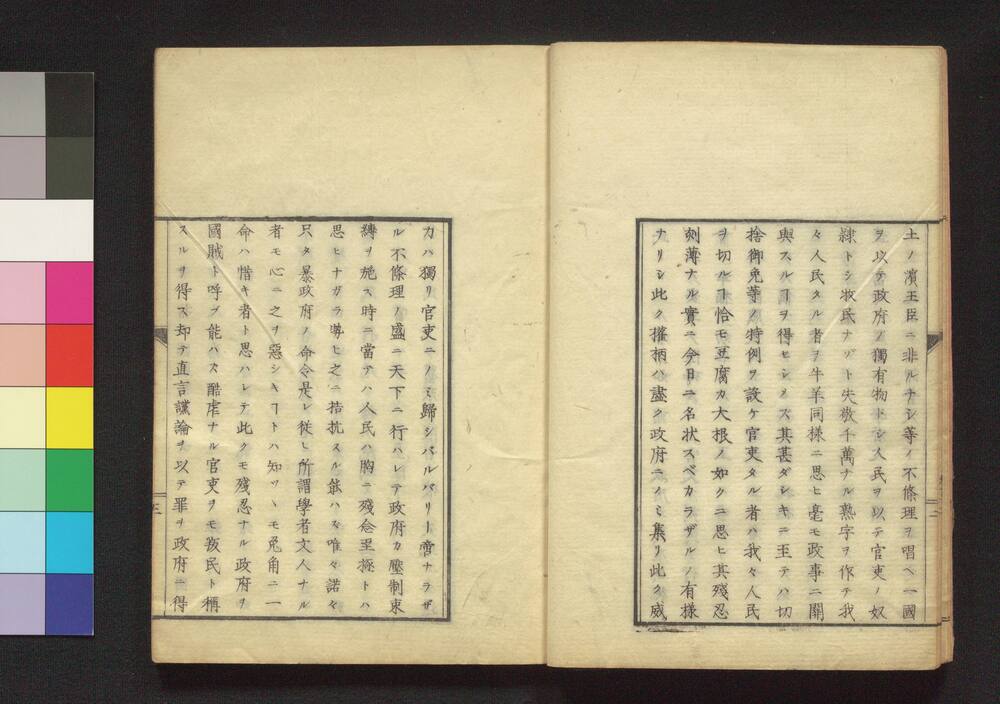 土ノ濱王臣ニ非ルナシ等ノ不條理ヲ唱ヘ一國
ヲ以テ政府ノ獨有物トシ人民ヲ以テ官吏ノ奴
隷トシ牧民ナゾト失敬千萬ナル熟字ヲ作テ我
々人民タル者ヲ牛羊同様ニ思ヒ毫モ政事ニ關
與スルヿヲ得セシメス其甚ダシキニ至テハ切
捨御免等ノ特例ヲ設ケ官吏タル者ハ我々人民
ヲ切ルヿ恰モ豆腐カ大根ノ如クニ思ヒ其殘忍
刻薄ナル實ニ今日ニ名状スベカラザルノ有様
ナリシ此ク權柄ハ盡ク政府ニノミ集リ此ク威
力ハ獨リ官吏ニノミ歸シバルバリー啻ナラザ
ル不條理ノ盛ニ天下ニ行ハレテ政府カ壓制束
縛ヲ施ス時ニ當テハ人民ハ胸ニ殘念至極トハ
思ヒナガラ夢ヒ之ニ抗スル能ハス唯々諾々
只タ暴政府ノ命令是レ従ヒ所謂學者文人ナル
者モ心ニ之ヲ惡シキヿトハ知ツヽモ兎角ニ一
命ハ惜キ者ト思ハレテ此クモ殘忍ナル政府ヲ
國賊ト呼ブ能ハス酷虐ナル官吏ヲモ叛民ト稱
スルヲ得ス却テ直言讜論ヲ以テ罪ヲ政府ニ得
二
三